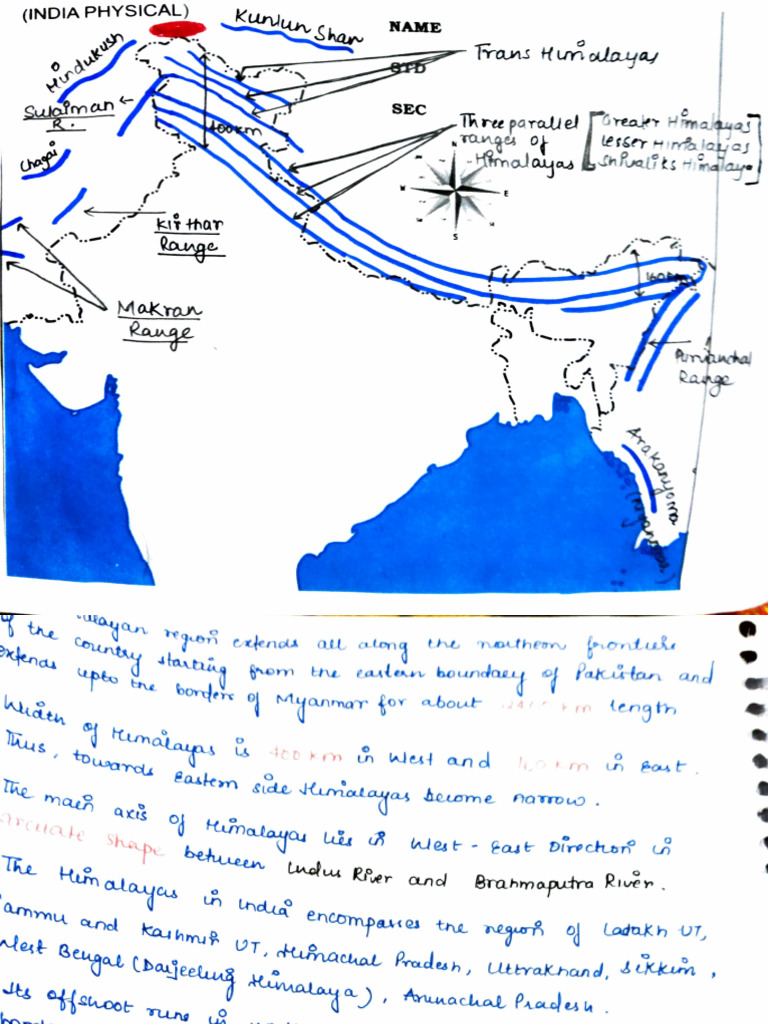 (INDIA PHYSICAL)
Kunlun Shan
NAME
Hindukush
STD
Trans Himalayas
Sulaiman
R.
SEC
400km
Three parallel
ranges of
Himalayas
Greater Himalayas
Lesser Himalayas
Shivaliks Himalaya
N
W
E
S
Chagai
Kirthar
Range
160km
Makran
Range
Purvanchal
Range
Arakanyoma
(Myanmar)
region extends all along the northern frontiers
of the country starting from the eastern boundary of Pakistan and
extends upto the borders of Myanmar for about km length
Width of Himalayas is 400 km in West and km in East.
Thus, towards Eastern side Himalayas become narrow.
The main axis of Himalayas lies in West - East Direction in
arcuate shape between Indus River and Brahmaputra River.
The Himalayas in India encompasses the region of Ladakh UT,
Jammu and Kashmir UT, Himachal Pradesh, Uttrakhand, Sikkim,
West Bengal (Darjeeling Himalaya), Arunachal Pradesh.
Its offshoot runs in